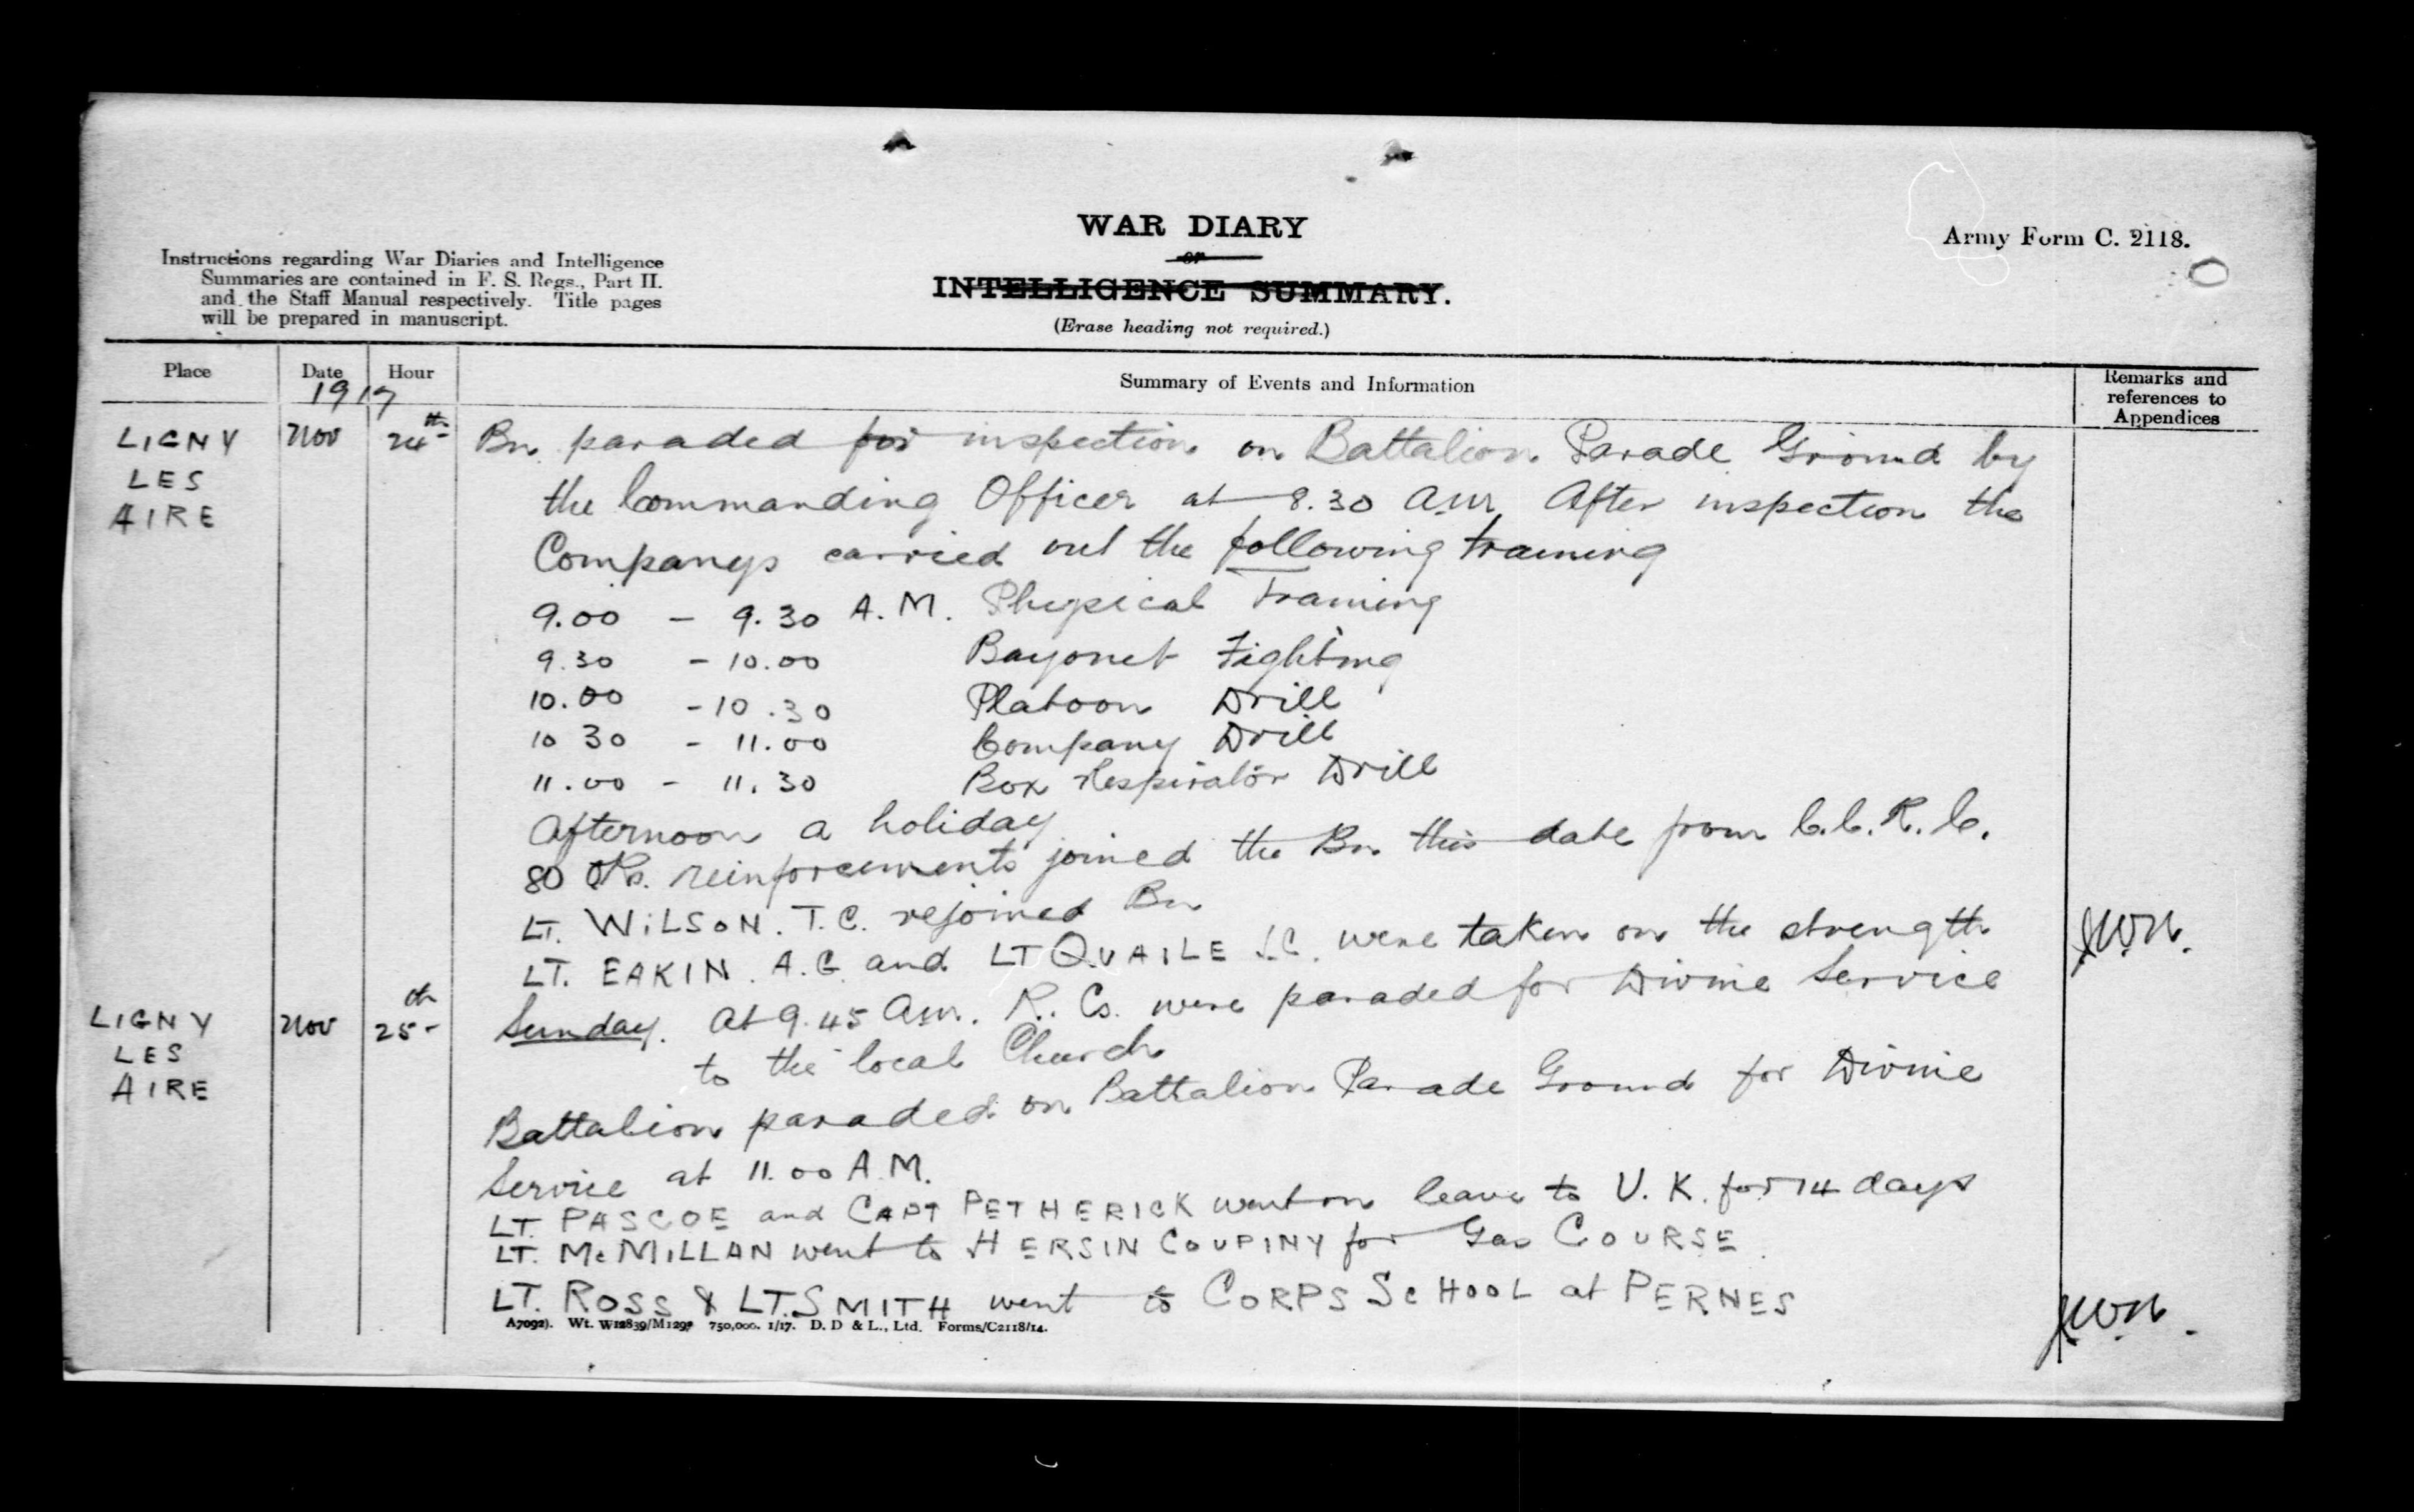 WAR DIARY
or
INTELLIGENCE SUMMARY.
(Erase heading not required.)
Army Form C. 2118.
Instructions regarding War Diaries and Intelligence
Summaries are contained in F. S. Regs., Part II.
and the Staff Manual respectively. Title pages
will be prepared in manuscript.
Place
Date
Hour
Summary of Events and Information
Remarks and
references to
Appendices
1917
LIGNY
LES
AIRE
Nov
24th
Bn. paraded for inspection on Battalion Parade Ground by
the Commanding Officer at 8.30 am. After inspection the
Companys carried out the following training
9.00 - 9.30 A.M. Physical Training
9.30 - 10.00 Bayonet Fighting
10.00 - 10.30 Platoon Drill
10 30 - 11.00 Company Drill
11.00 - 11.30 Box Respirator Drill
Afternoon a holiday
80 ORs. reinforcements joined the Bn. this date from C.C.R.C.
LT. WILSON. T.C. rejoined Bn
LT. EAKIN. A.G. and LT QUAILE were taken on the strength
LIGNY
LES
AIRE
Nov
25th
Sunday. At 9.45 am. R. Cs. were paraded for Divine Service
to the local Church
Battalion paraded on Battalion Parade Ground for Divine
Service at 11.00 A.M.
LT. PASCOE and CAPT PETHERICK went on leave to U.K. for 14 days
LT. McMILLAN went to HERSIN COUPINY for Gas COURSE.
LT. ROSS & LT. SMITH went to CORPS SCHOOL at PERNES
A7092). Wt. W12839/M1297 750,000. 1/17. D. D & L., Ltd. Forms/C2118/14.